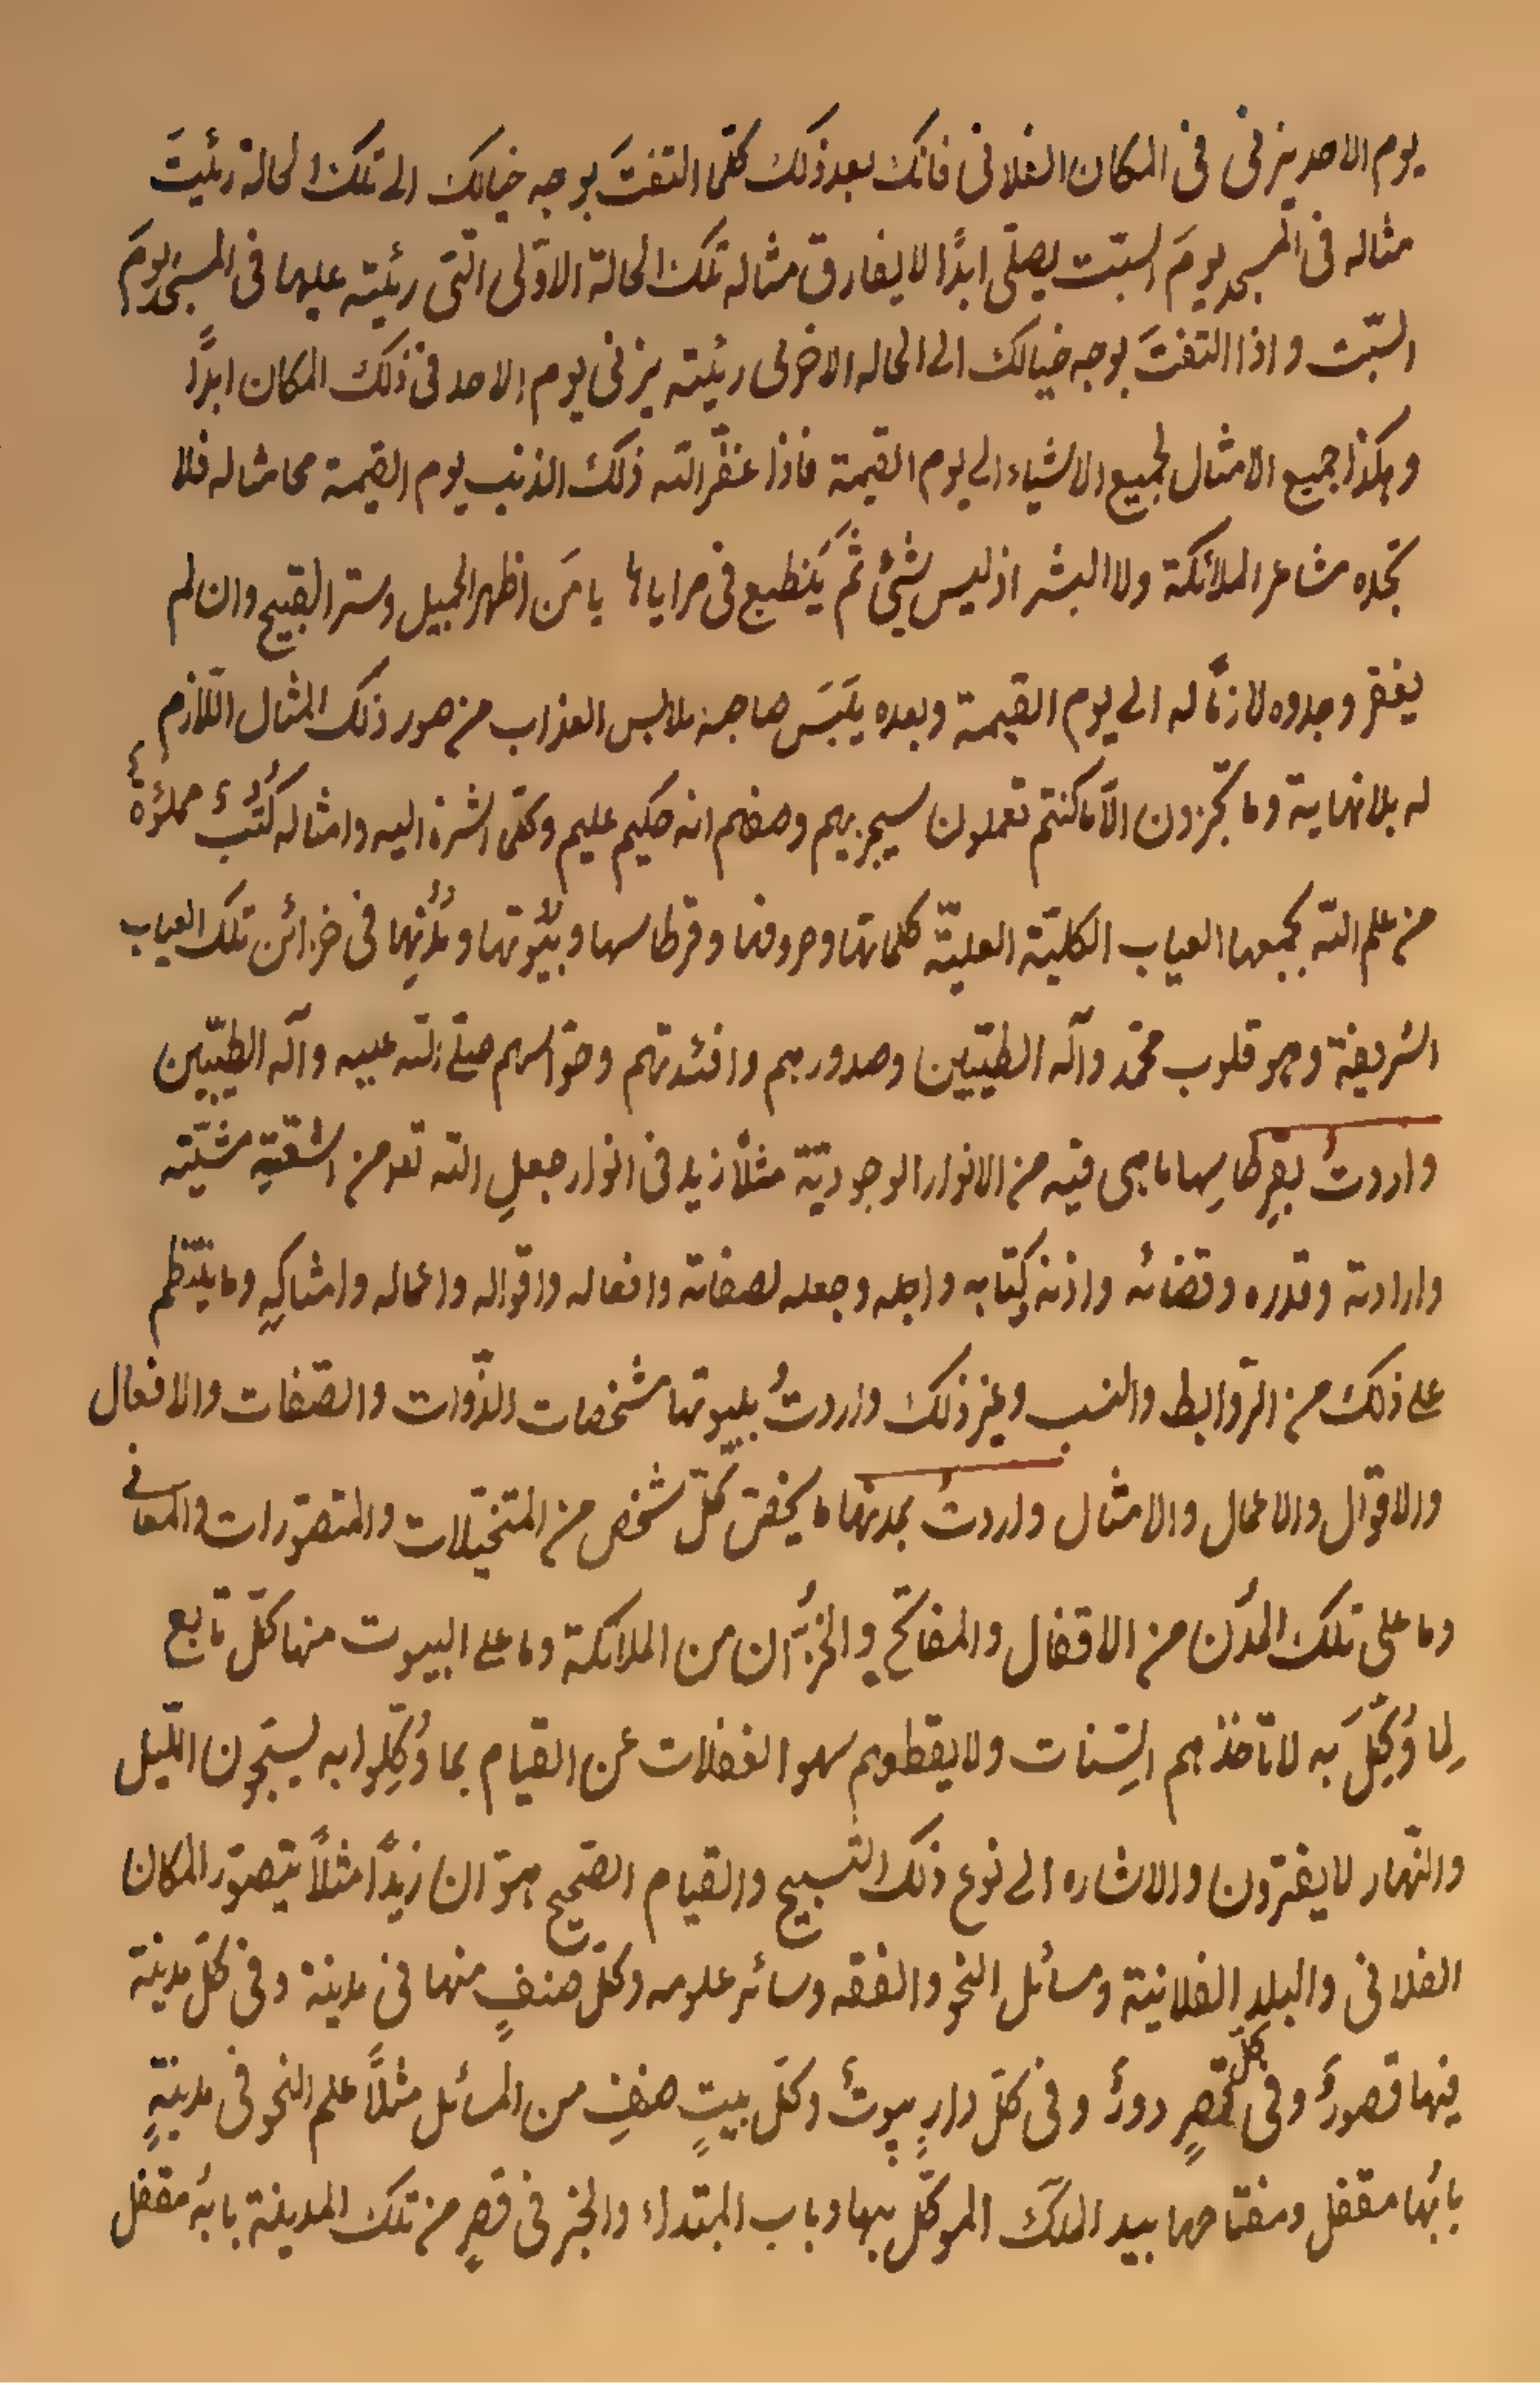 يوم الاحد يزنى فى المكان الفلانى فانك بعد ذلك كلّما التفتَ بوجه خيالك الى تلك الحالة رئيتَ
مثاله فى المسجد يومَ السبت يصلّى ابدًا لا يفارق مثاله تلك الحالة الاوّلى الّتى رئيته عليها فى المسجد يومَ
السّبت و اذا التفتَ بوجه خيالك الى الحاله الاخرى رئيته يزنى يوم الاحد فى ذلك المكان ابدًا
وهكذا جميع الامثال لجميع الاشياء الى يوم القيمة فاذا غفر اللّه ذلك الذنب يوم القيمة محا مثاله فلا
تجده مشاعر الملائكة ولا البشر اذ ليس شئٌ ثَمَّ يَنطبع فى مراياها يا مَن اظهر الجميل وستر القبيح وان لم
يغفر وجدوه لازمًا له الى يوم القيمة وبعده يَلبَسَ صاحبه ملابس العذاب من صور ذلك المثال اللّازم
له بلا نهاية وما تجزون الّا ما كنتم تعملون سيجزيهم وصفهم انه حكيم عليم وكلّما اشرنا اليه وامثاله كُتُبٌ مملؤةٌ
من علم اللّه بجمعها العياب الكليّة العليّة كلماتها وحروفها وقرطاسها وبيُوتها ومُدُنِها فى خزائن تلك العياب
الشريفة وهو قلوب محمّد وآله الطيّبين وصدورهم وافئدتهم وحوّاسهم صلّى اللّه عليه وآله الطيّبين
واردتُ بقِرطاسِها ما هى فيه من الانوار الوجوديّة مثلاً زيد فى انوار جعلِ اللّه تعه من اشعّةِ مشيّته
وارادته وقدره وقضائه واذنه كِتابه واجله وجعله لصفاته وافعاله واقواله واعماله وامثالِهِ وما ينتظم
على ذلك من الرّوابط والنسب وغير ذلك واردتُ ببيوتها مشخصات الذّوات والصّفات والافعال
والاقوال والاعمال والامثال واردتُ بمدنها ما يخصّ كلّ شخص من المتخيّلات والمتصوّرات والمعانى
وما على تلك المُدُن من الاقفال والمفاتح والخُزّان من الملائكة وما على البيوت منها كلّ تابع
لِما وُكِّلَ به لا تأخذهم السِّنات ولا يقطعهم سهو الغفلات عن القيام بما وُكِّلوا به يسبّحون اللّيل
والنّهار لا يفترون والاشاره الى نوع ذلك التسبيح والقيام الصّحيح هوَ ان زيدًا مثلاً يتصوّر المكان
الفلانى والبلد الفلانية ومسائل النحو والفقه وسائر علومه وكلّ صنفٍ منها فى مدينة وفى كلّ مدينة
فيها قصورٌ وفى كلّ قصرٍ دورٌ وفى كلّ دارٍ بيوتٌ وكلّ بيتٍ صنفٍ من المسائل مثلاً علم النحو فى مدينةٍ
بابُها مقفل ومفتاحها بيد الملَك الموكّل بها وباب المبتداء والخبر فى قصرٍ من تلك المدينة بابهُ مقفل